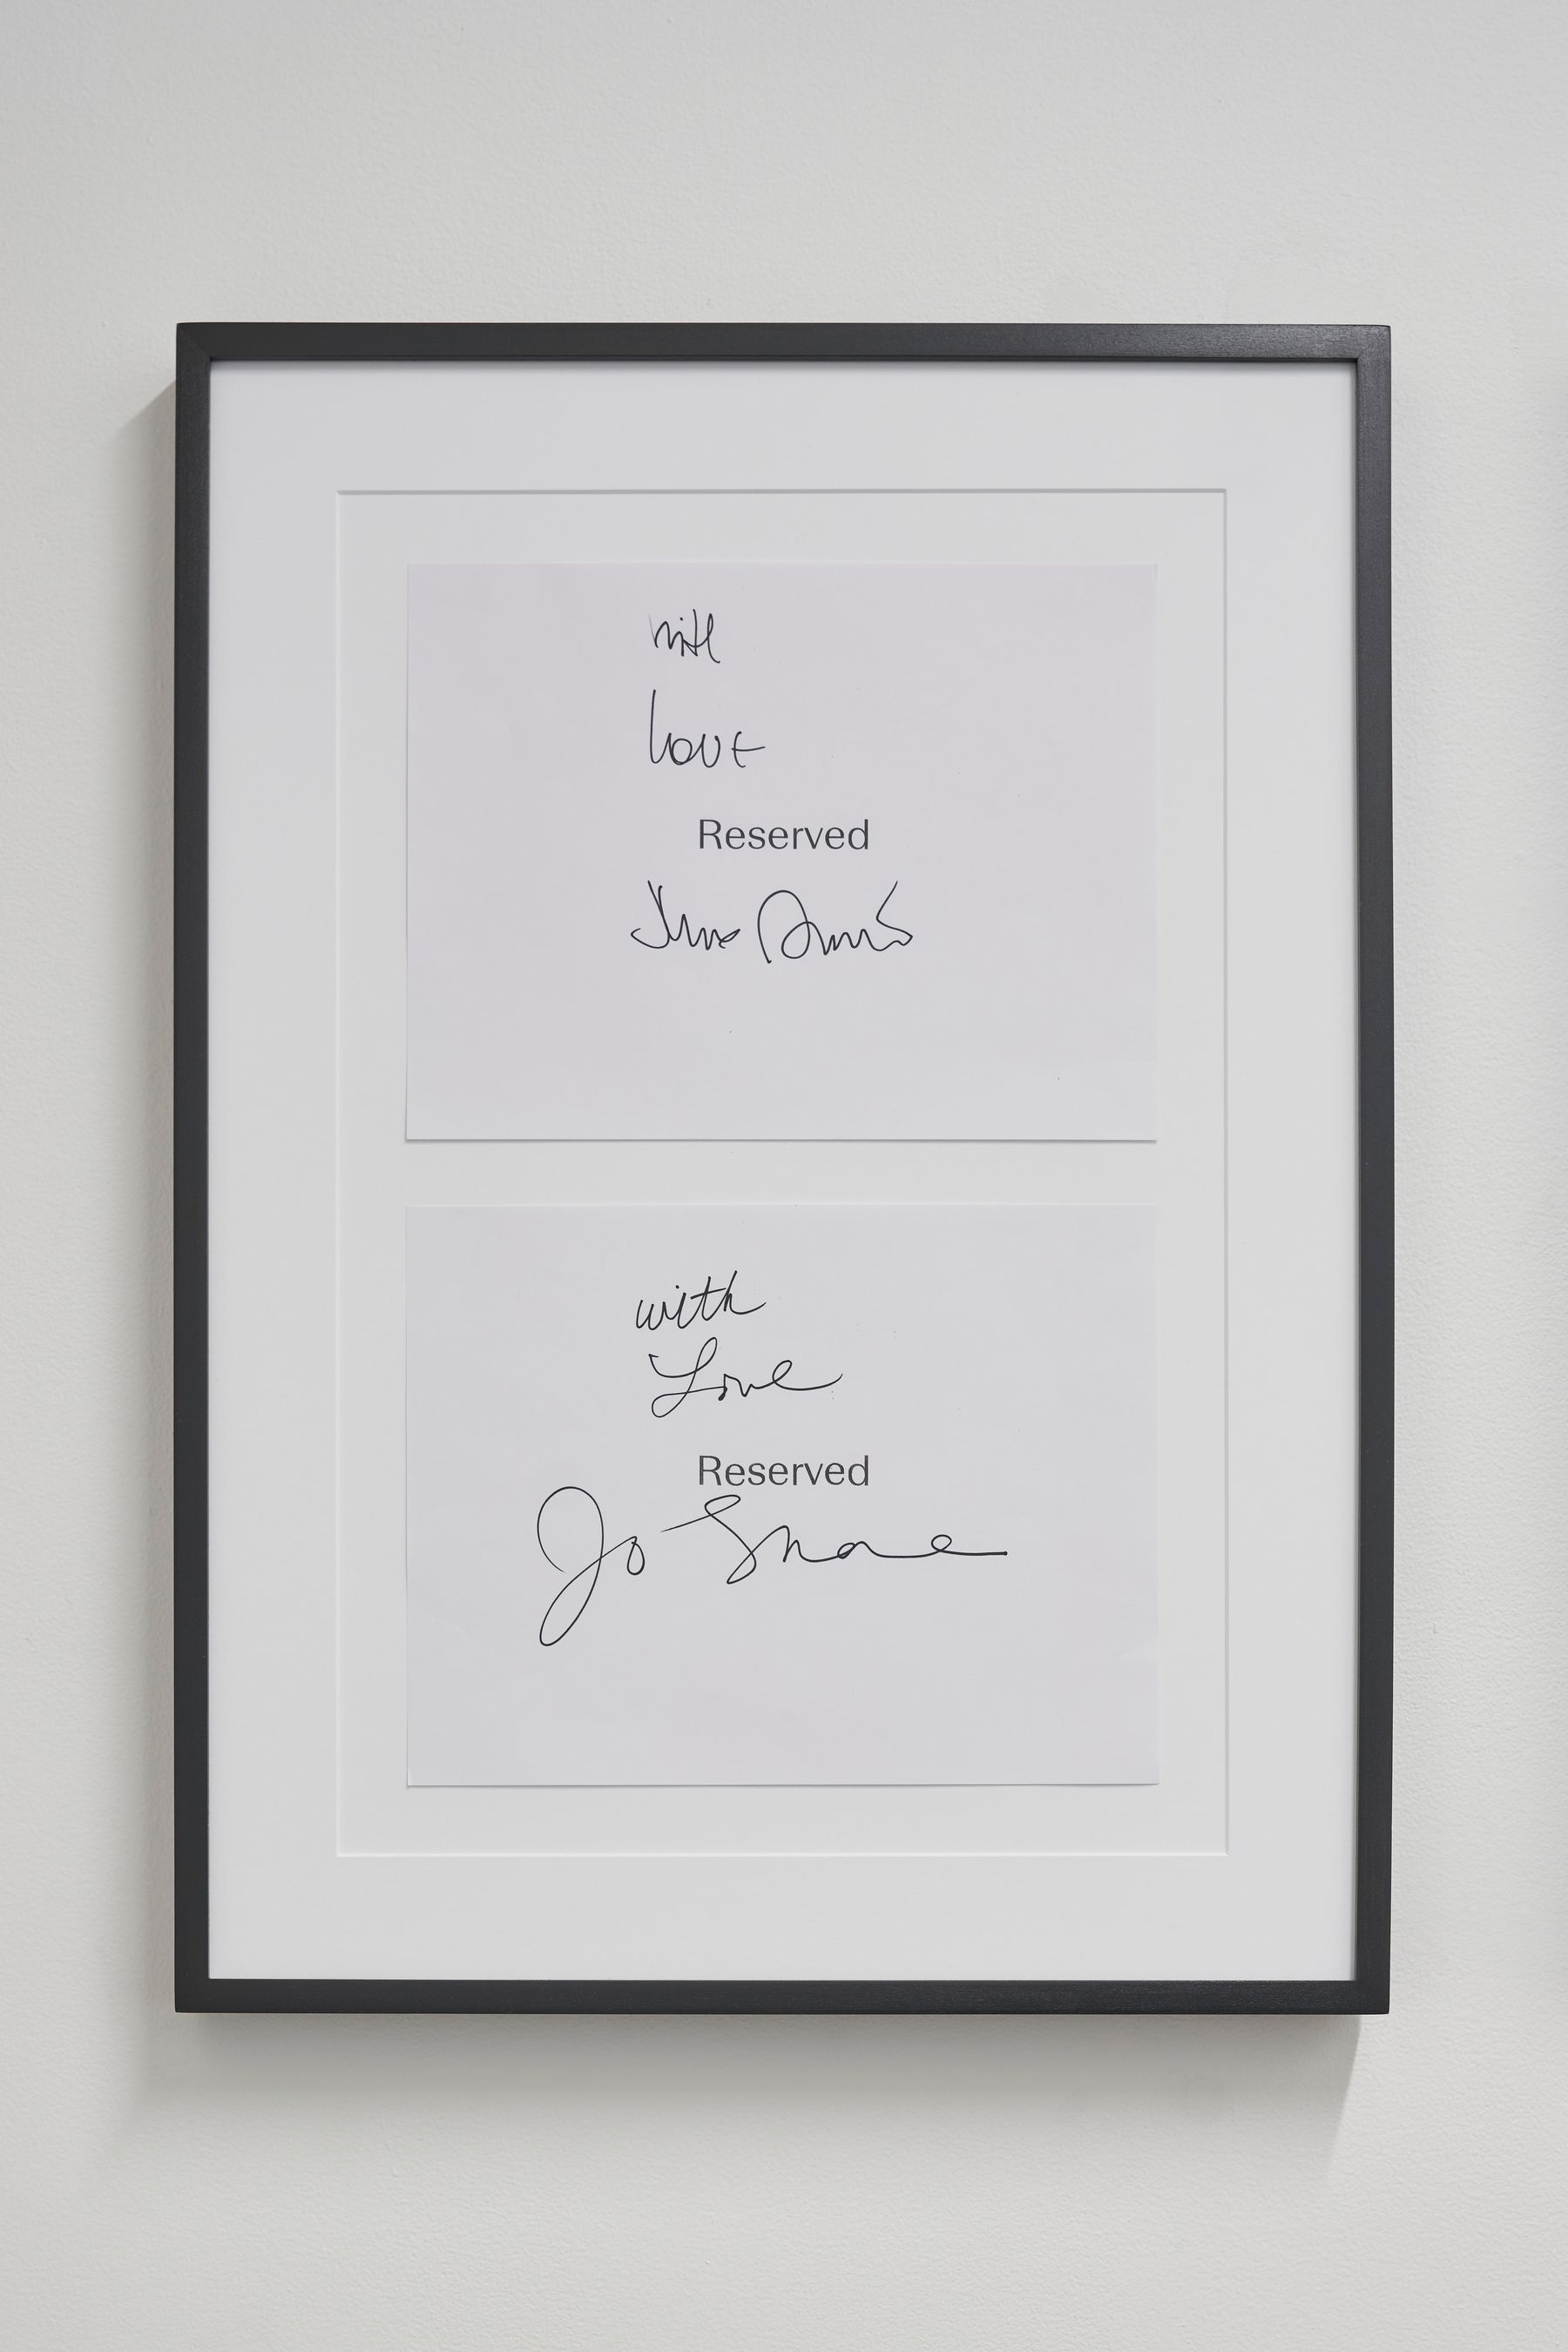 with
Love
Reserved
with
Love
Reserved
Jo Shane